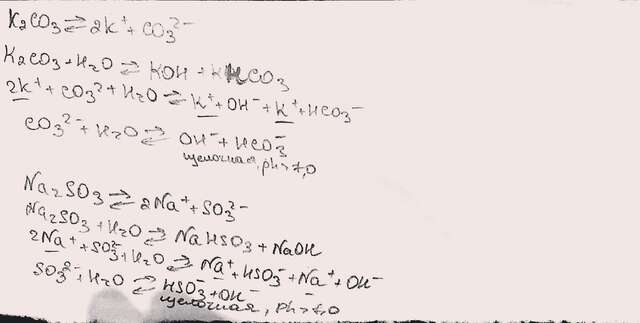 K₂CO₃ ⇄ 2K⁺ + CO₃²⁻
K₂CO₃ + H₂O ⇄ KOH + KHCO₃
2K⁺ + CO₃²⁻ + H₂O ⇄ K⁺ + OH⁻ + K⁺ + HCO₃⁻
CO₃²⁻ + H₂O ⇄ OH⁻ + HCO₃⁻
щелочная, ph > 7,0
Na₂SO₃ ⇄ 2Na⁺ + SO₃²⁻
Na₂SO₃ + H₂O ⇄ NaHSO₃ + NaOH
2Na⁺ + SO₃²⁻ + H₂O ⇄ Na⁺ + HSO₃⁻ + Na⁺ + OH⁻
SO₃²⁻ + H₂O ⇄ HSO₃⁻ + OH⁻
щелочная, ph > 7,0